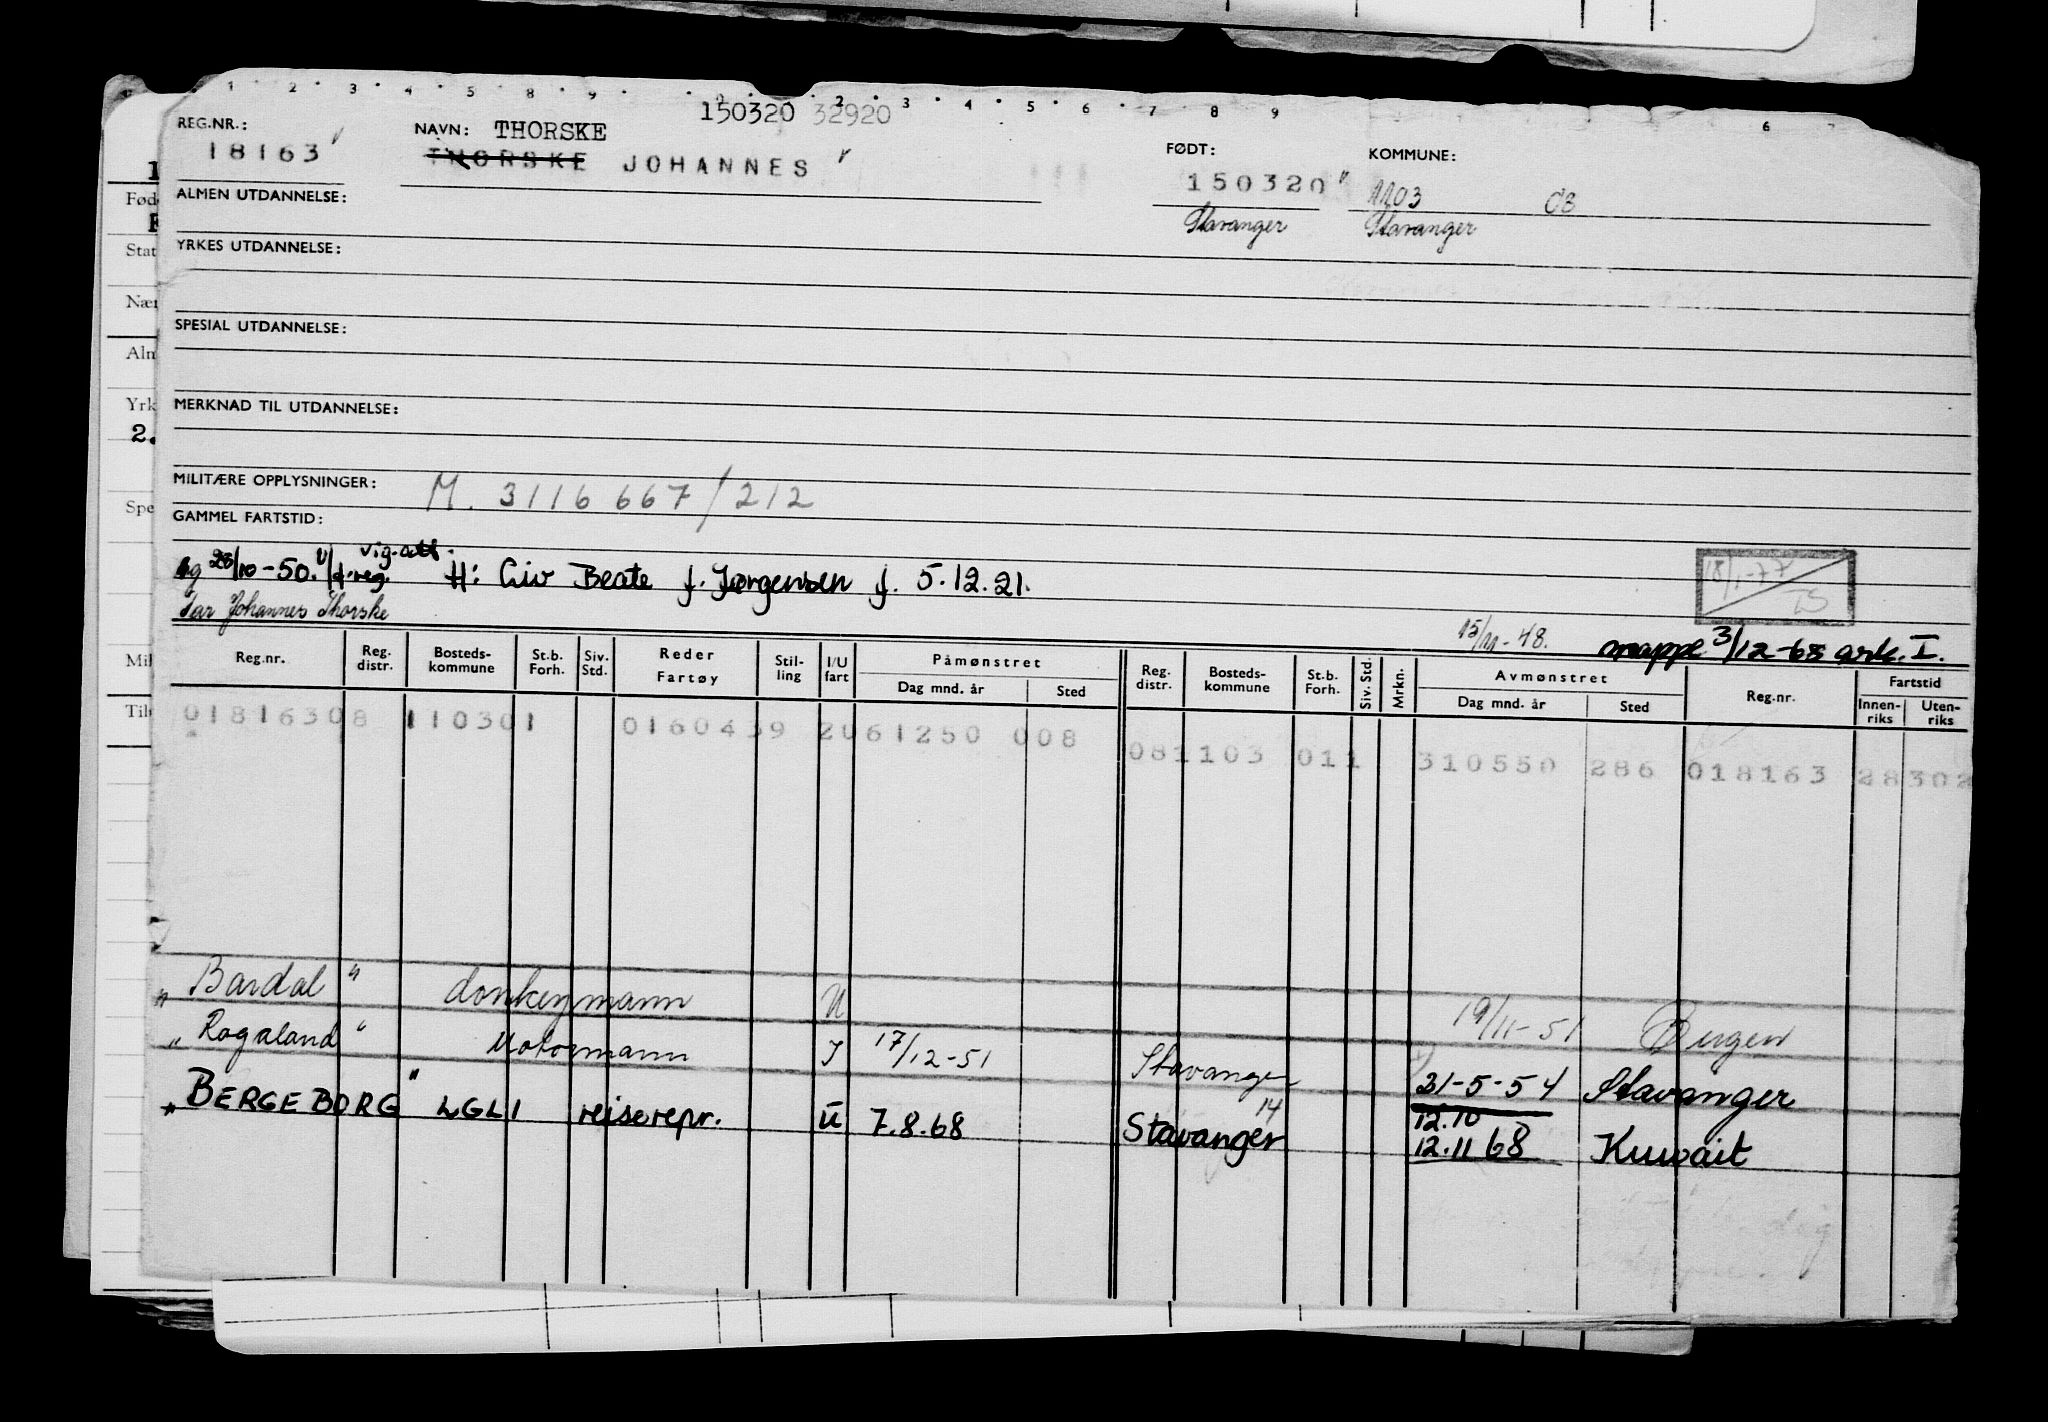 150320 32920
REG.NR.: 18163
NAVN: THORSKE
THORSKE JOHANNES
FØDT: 150320 Stavanger
KOMMUNE: 1103 Stavanger
ALMEN UTDANNELSE:
YRKES UTDANNELSE:
SPESIAL UTDANNELSE:
MERKNAD TIL UTDANNELSE:
MILITÆRE OPPLYSNINGER: M. 3116 667/212
GAMMEL FARTSTID:
28/10-50. vig.att. H: Liv Beate f. Jørgensen f. 5.12.21.
Far Johannes Thorske
18/1-77 TS
15/11-48. mappe 3/12-68 ark. I.
Reg.nr. Reg. distr. Bosteds-kommune St.b. Forh. Siv. Std. Reder Fartøy Stil-ling I/U fart Påmønstret Dag mnd. år Sted Reg. distr. Bosteds-kommune St.b. Forh. Siv. Std. Mrkn. Avmønstret Dag mnd. år Sted Reg.nr. Fartstid Innen-riks Uten-riks
01816308 110301 0160439 2061250 008 081103 011 310550 286 018163 28302
"Bardal" donkeymann U 19/11-51 Bergen
"Rogaland" Motormann I 17/12-51 Stavanger 21-5-54 Stavanger
"BERGEBORG" LGLI reiserepr. U 7.8.68 Stavanger 14 12.10 12.11 68 Kuwait
Fød
Stat
Nær
Alm
Yrk
2.
Spe
Mil
Til